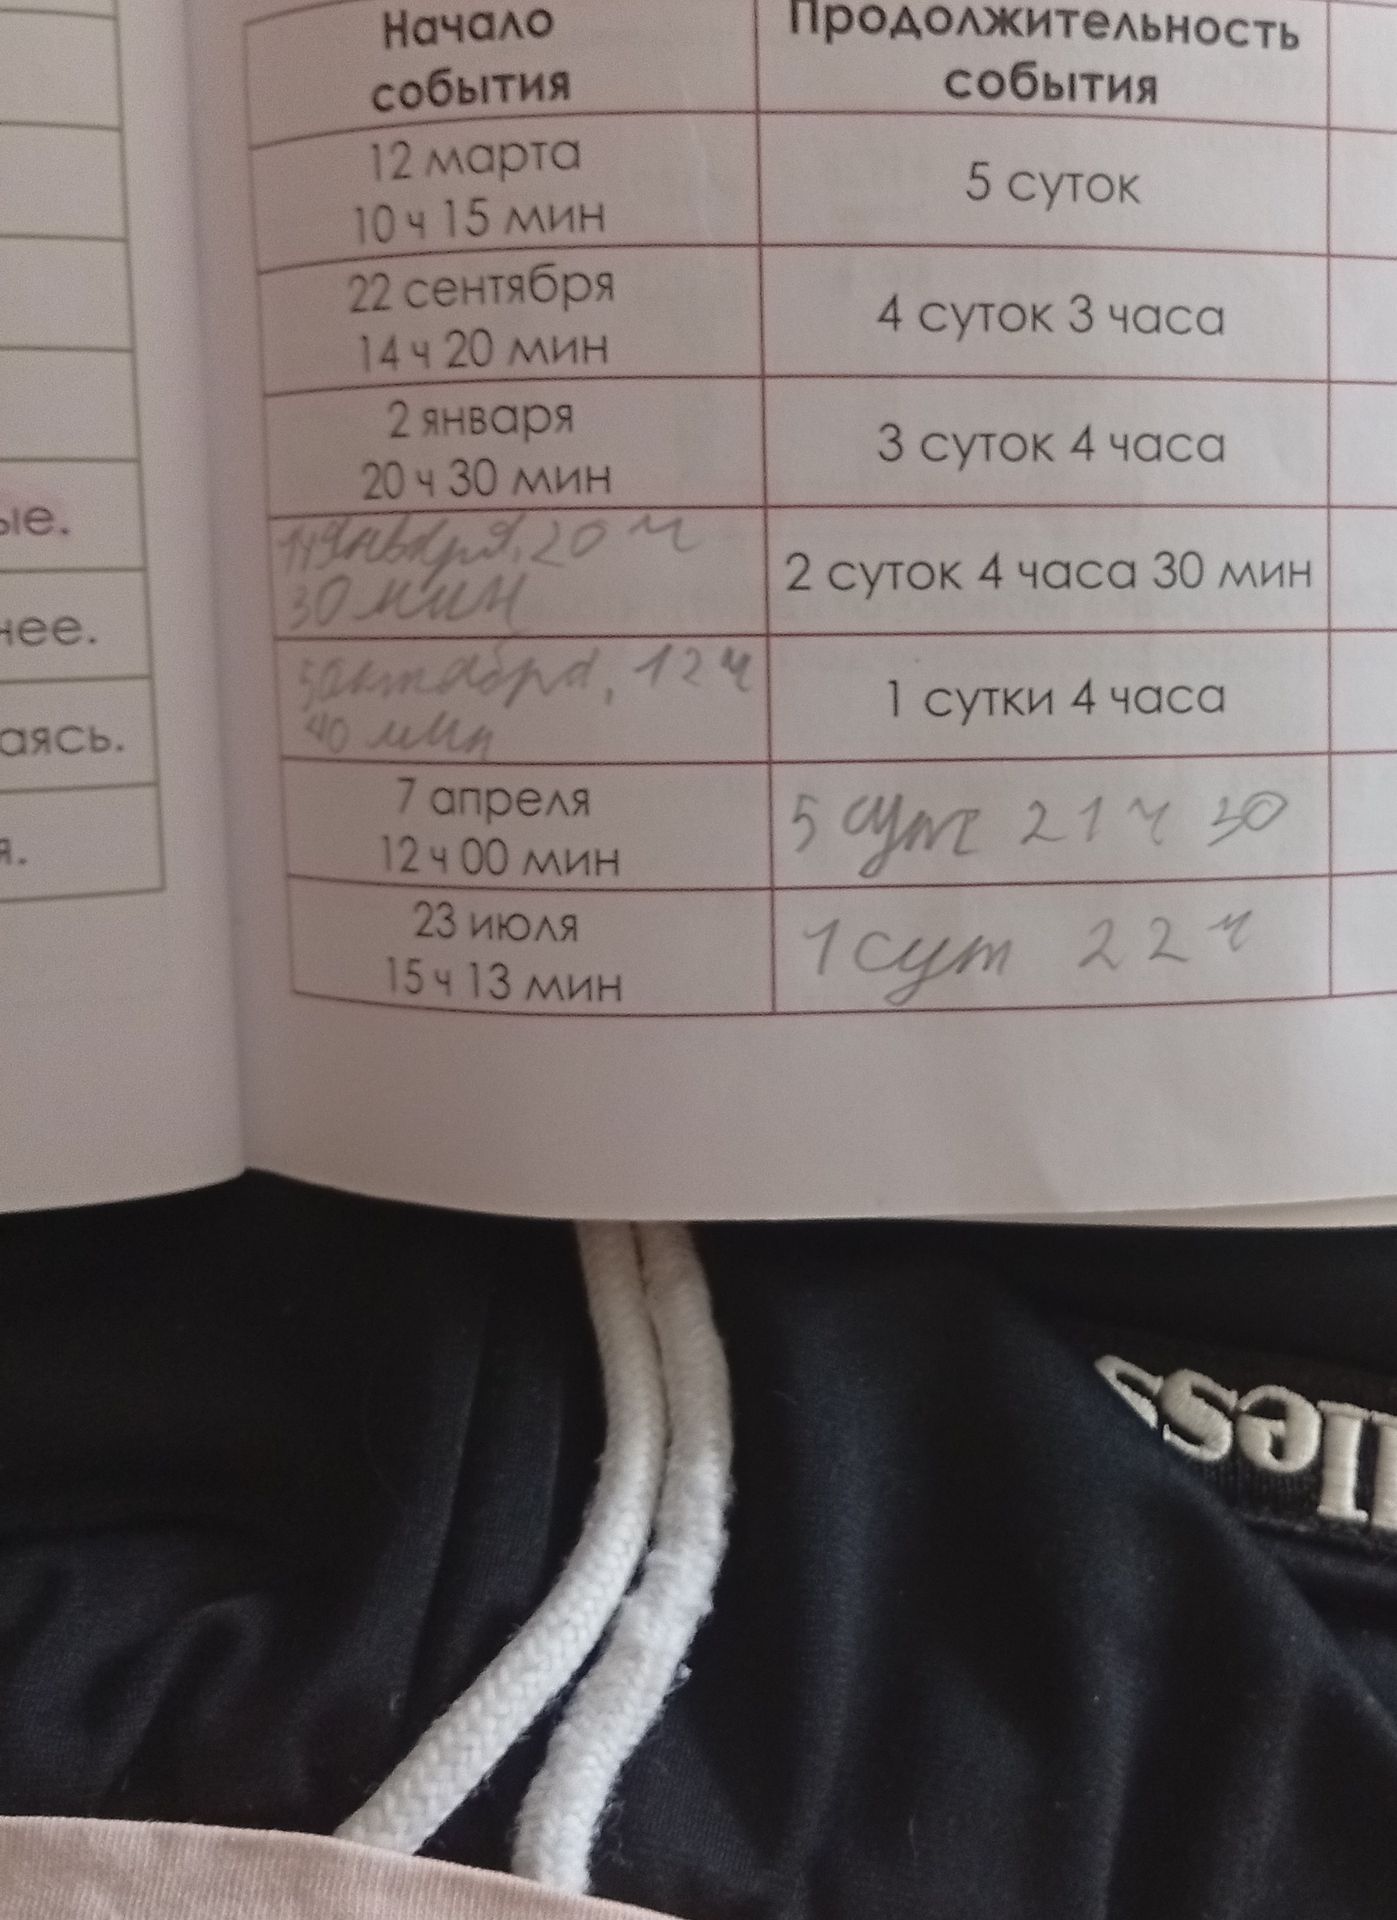 Начало
события
Продолжительность
события
12 марта
10 ч 15 мин
5 суток
22 сентября
14 ч 20 мин
4 суток 3 часа
2 января
20 ч 30 мин
3 суток 4 часа
14 января, 20 ч
30 мин
2 суток 4 часа 30 мин
5 октября, 12 ч
40 мин
1 сутки 4 часа
7 апреля
12 ч 00 мин
5 сут 21 ч 30
23 июля
15 ч 13 мин
1 сут 22 ч
ые.
нее.
аясь.
я.